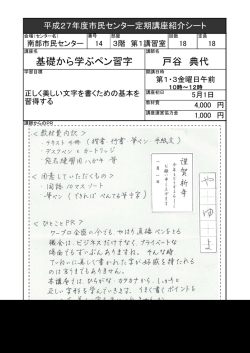 平成27年度市民センター定期講座紹介シート
会場(センター名) 番号 部屋 回数 定員
南部市民センター 14 3階 第1講習室 18 18
講座名 講師名
基礎から学ぶペン習字 戸谷 典代
学習目標 開講日時
第1・3金曜日午前
10時～12時
正しく美しい文字を書くための基本を
習得する
開講日 5月1日
教材費 4,000 円
講座運営協力金 1,000 円
講師からのPR
＜教材費内訳＞
・テキスト4冊（楷書 行書 筆ペン 手紙文）
・デスクペン ・カートリッジ
宛名練習用ハガキ 等
＜用意していただくもの＞
・国語10マスノート
・筆ペン（できればぺんてる筆中字）
＜ひとことPR＞
ワープロ全盛の今でも やはり直接ペンをとる
機会は、ビジネスだけでなく、プライベートな
場合でもずいぶんあります。そんな時
ていねいに美しく書かれた字が好感を持たれるの
は言うまでもありません。
本講座では、ひらがな、カタカナから、しっかりと
正しい字形を学んでいきます。うまく書くポイントを
謹賀新年
やゆよ